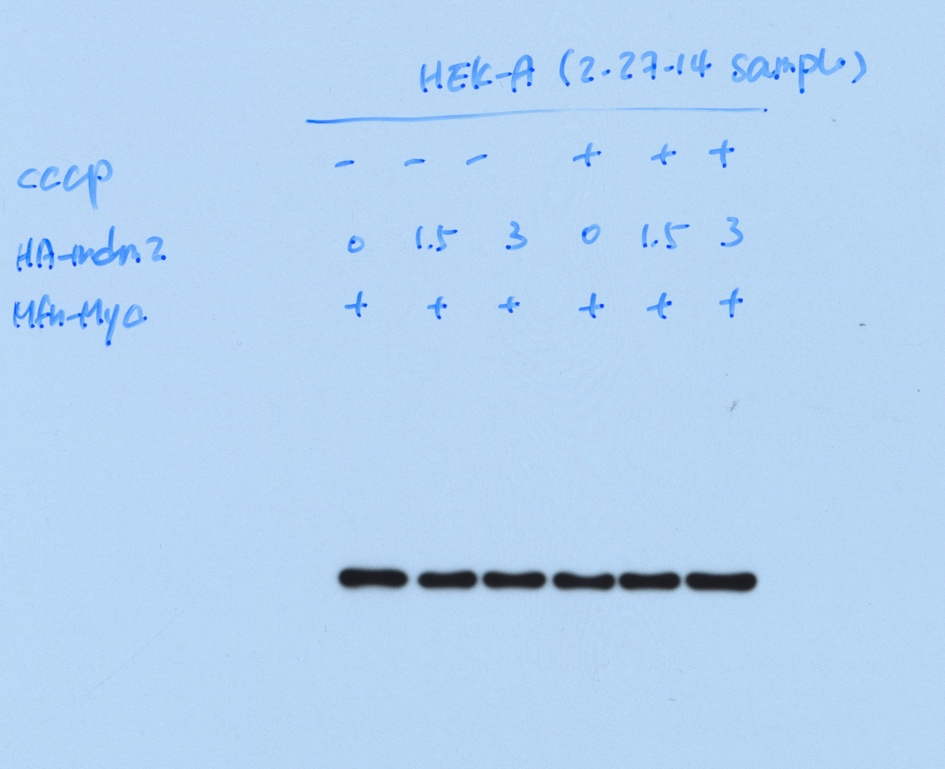 HEK-A (2.27.14 sample)
CCCP - - - + + +
HA-mdm2 0 1.5 3 0 1.5 3
+ + + + + +